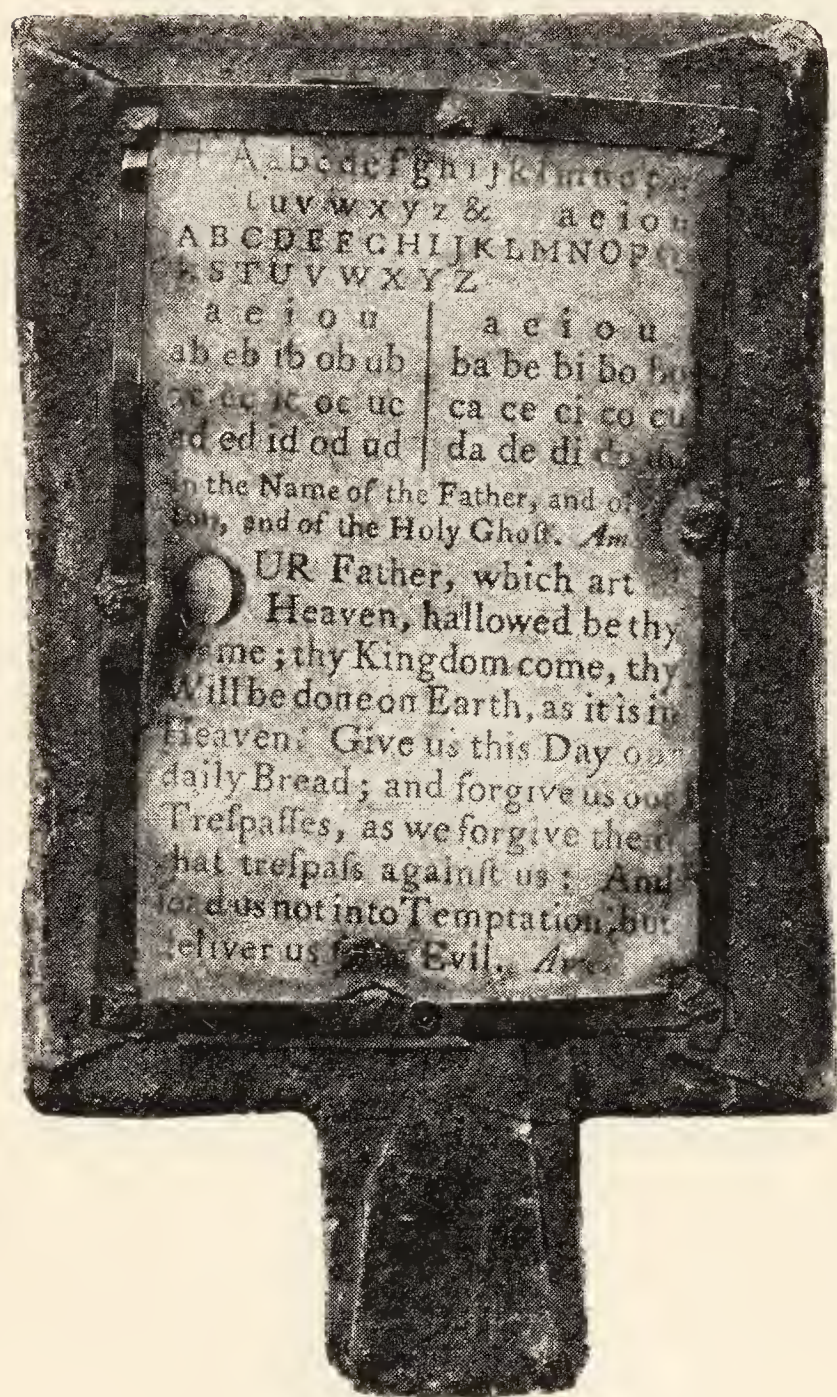 + A a b c d e f g h i j k l m n o p
t u v w x y z & a e i o u
A B C D E F G H I J K L M N O P Q
R S T U V W X Y Z
a e i o u | a e i o u
ab eb ib ob ub | ba be bi bo bu
ac ec ic oc uc | ca ce ci co cu
ad ed id od ud | da de di do du
In the Name of the Father, and of
Son, and of the Holy Ghoſt. Am
UR Father, which art
Heaven, hallowed be thy
me; thy Kingdom come, thy
Will be done on Earth, as it is in
Heaven. Give us this Day our
daily Bread; and forgive us our
Treſpaſſes, as we forgive them
that treſpaſs againſt us: And
lead us not into Temptation, but
deliver us from Evil. Am